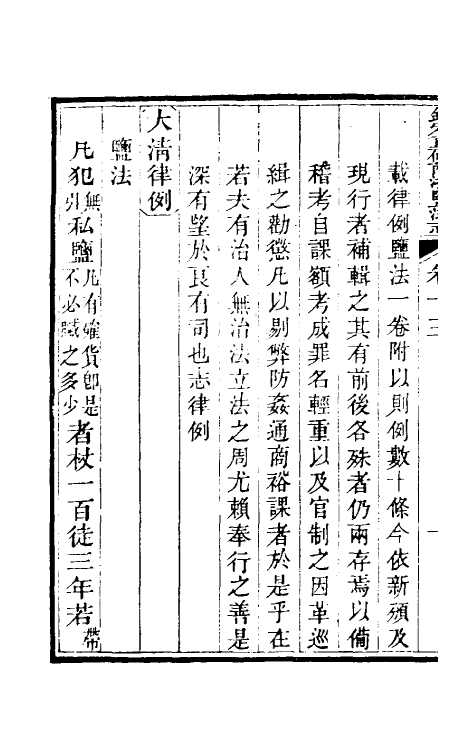 載律例鹽法一卷附以則例數十條今依新頒及
現行者補輯之其有前後各殊者仍兩存焉以備
稽考自課額考成罪名輕重以及官制之因革巡
緝之勸懲凡以剔弊防姦通商裕課者於是乎在
若夫有治人無治法立法之周尤賴奉行之善是
深有望於良有司也志律例
大清律例
鹽法
凡犯無引私鹽凡有確貨卽是不必贓之多少者杖一百徒三年若帶